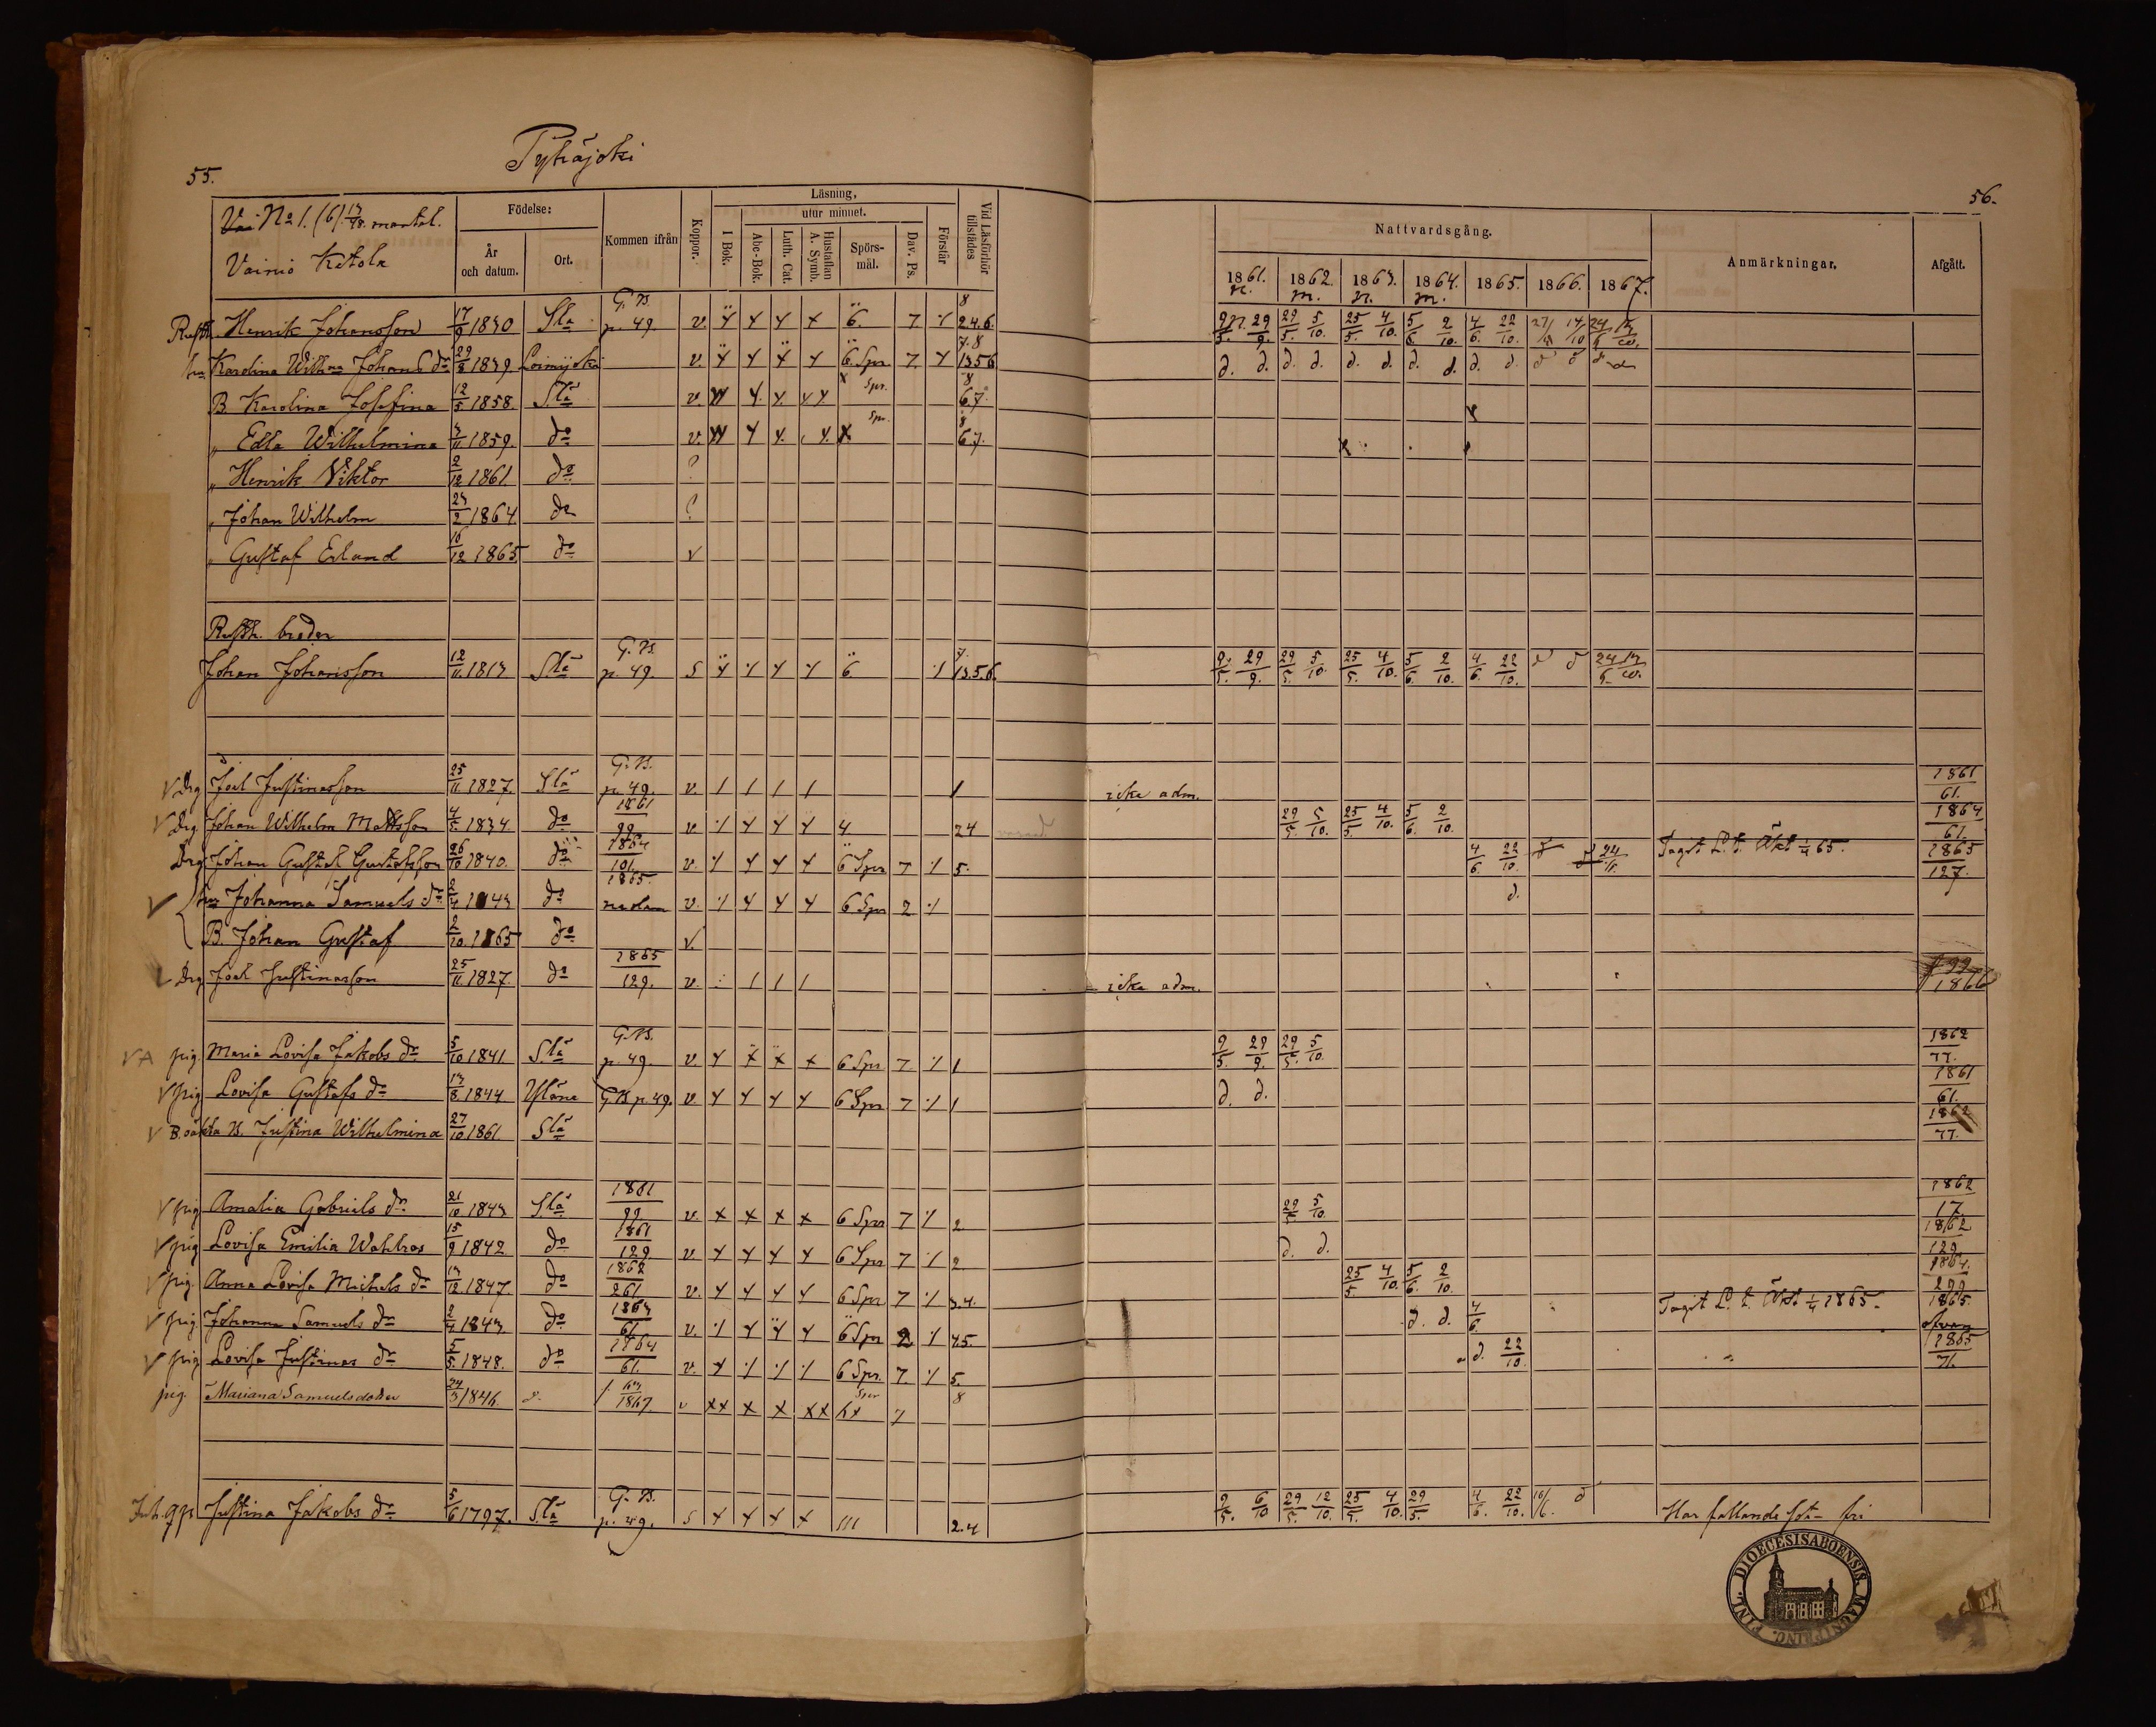 Pyhäjoki
55.
No 1. (6) 17/48. mantal.
Vainio Ketola
Födelse:
År och datum.
Ort.
Kommen ifrån
Koppor.
Läsning,
utur minnet.
I Bok.
Abc-Bok.
Luth. Cat.
Hustaflan A. Symb.
Spörs-mål.
Dav. Ps.
Förstår
Vid Läsförhör tillstädes
56.
Nattvardsgång.
1861. 1862. 1863. 1864. 1865. 1866. 1867.
Anmärkningar.
Afgått.
Rusth. Henrik Johansson 17/9 1830 Sla G.B. p. 49 v. 6. 7 8 2.4.6.
hu Karolina Wilhna Johans dr 29/8 1839 Loimijoki v. 6 Spr 7. 7.8 1356
B Karolina Josefina 12/5 1858. Sla v. Spr. 8 67.
" Edla Wilhelmina 3/11 1859. do v. Spr. 8 67.
" Henrik Viktor 2/12 1861. do ?
" Johan Wilhelm 23/2 1864 do ?
" Gustaf Erland 16/12 1865 do v
Rusth. broder
Johan Johansson 12/11 1813 Sla G.B. p. 49 S 6 7. 13.5.6.
9/5. 29/9. 29/5. 5/10. 25/5. 4/10. 5/6. 2/10. 4/6. 22/10. d d 24/6 13/10.
Drg Joel Justinasson 25/11 1827. Sla G.B. p. 49. v. 1 icke adm. 1861/61.
Drg. Johan Wilhelm Mattsson 4/5. 1834. do 1861/99 v. 4 24 29/5. 5/10. 25/5. 4/10. 5/6. 2/10. 1864/61.
Drg Johan Gustaf Gustafsson 26/10 1840. do 1864/101. v. 6 Spr 7 5. 4/6. 22/10. Tagit L. t. Äkt 1/4 65. 1865/127.
hu Johanna Samuels dr 2/4 1843 do 1865. nedan v. 6 Spr 2 d.
B. Johan Gustaf 2/10. 1865 do v.
Drg Joel Justinasson 25/11 1827. do 1865/129. v. icke adm. 1866
pig. Maria Lovisa Jakobs dr 5/10 1841 Sla G.B. p. 49. v. 6 Spr 7 1 9/5. 29/9. 29/5. 5/10. 1862/77.
pig Lovisa Gustafs dr 13/8 1844 Yläne G.B p. 49. v. 6 Spr 7 1 d. d. 1861/61.
B. oäkta B. Justina Wilhelmina 27/10 1861. Sla 1862/77.
pig Amalia Gabriels dr 21/10 1843 Sla 1861/99 v. 6 Spr 7 2 29/5 5/10. 1862/17.
pig Lovisa Emilia Wahlros 15/9 1842 do 1861/129 v. 6 Spr 7 2 d. d. 1862/129
pig. Anna Lovisa Michels dr 13/12 1847. do 1862/261 v. 6 Spr 7 3.4. 25/5 4/10. 5/6. 2/10. 1864./299
pig. Johanna Samuels dr 2/4 1843 do 1863/61. v. 6 Spr 2 45. d. d. 4/6. Tagit L. t. Äkt 1/4 1865. 1865. ofvan
pig Lovisa Justinas dr 5/5. 1848. do 1864/61. v. 6 Spr. 7. 5. d. 22/10. 1865/71.
pig. Mariana Samuelsdotter 24/3 1846. d. 63/1867. v Spr 7 8
Inh. Justina Jakobs dr 5/6 1797. Sla G.B. p. 49. S 2.4 9/5. 6/10 29/5. 12/10. 25/5. 4/10. 29/5. 4/6. 22/10. 16/6. d Har fallande sot
FINL. DIOECESIS ABOENSIS. MAGNI PRINC.